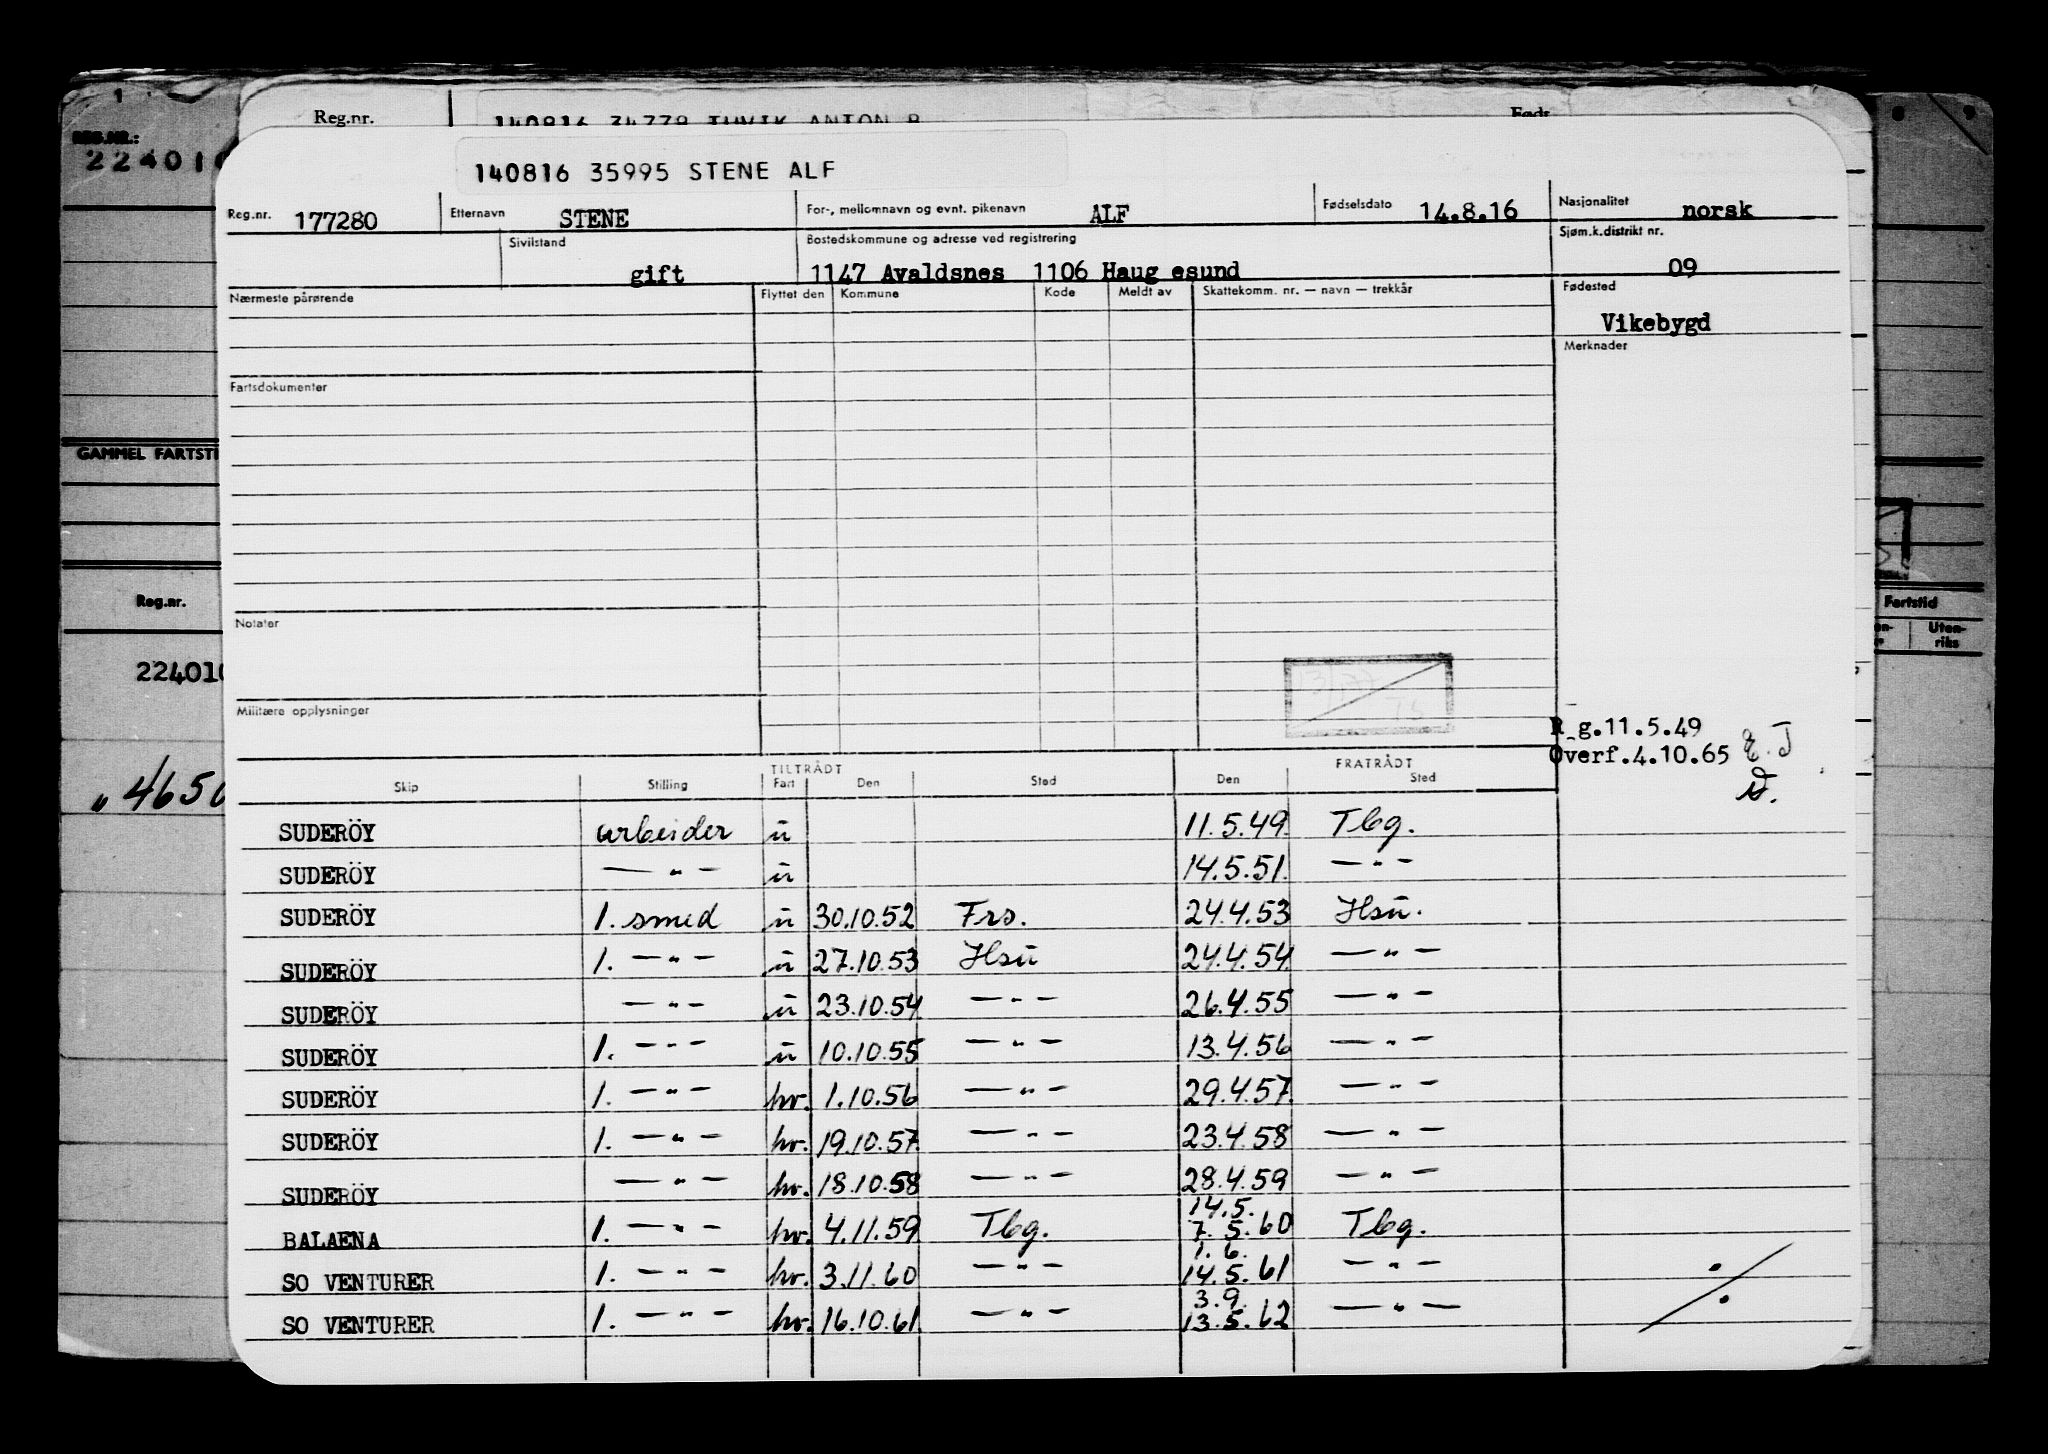 1
REG.NR.:
22401
Reg.nr.
140816 34779 THVIK ANTON B
Født
8
9
140816 35995 STENE ALF
Reg.nr. 177280 Etternavn STENE For-, mellomnavn og evnt. pikenavn ALF Fødselsdato 14.8.16 Nasjonalitet norsk
Sivilstand gift Bostedskommune og adresse ved registrering 1147 Avaldsnes 1106 Haug esund Sjøm.k.distrikt nr. 09
Nærmeste pårørende Flyttet den Kommune Kode Meldt av Skattekomm. nr. — navn — trekkår Fødested
Vikebygd
Merknader
Fartsdokumenter
GAMMEL FARTSTI
Reg.nr.
Fartstid
Uten-
riks
Notater
22401
Militære opplysninger
R g.11.5.49
Overf.4.10.65 E.J
" 4650
TILTRÅDT FRATRÅDT
Skip Stilling Fart Den Sted Den Sted
SUDERÖY arbeider u 11.5.49 Tbg.
SUDERÖY — " — u 14.5.51. — " —
SUDERÖY 1. smed u 30.10.52 Frs. 24.4.53 Hsu.
SUDERÖY 1. — " — u 27.10.53 Hsu 24.4.54 — " —
SUDERÖY — " — u 23.10.54 — " — 26.4.55 — " —
SUDERÖY 1. — " — u 10.10.55 — " — 13.4.56 — " —
SUDERÖY 1. — " — hv. 1.10.56 — " — 29.4.57. — " —
SUDERÖY 1. — " — hv. 19.10.57 — " — 23.4.58 — " —
SUDERÖY — " — hv. 18.10.58 — " — 28.4.59 — " —
14.5.
BALAENA 1. — " — hv. 4.11.59 Tbg. 7.5.60 Tbg.
1.6.
SO VENTURER 1. — " — hv. 3.11.60 — " — 14.5.61 — " —
3.9.
SO VENTURER 1. — " — hv. 16.10.61 — " — 13.5.62 — " —